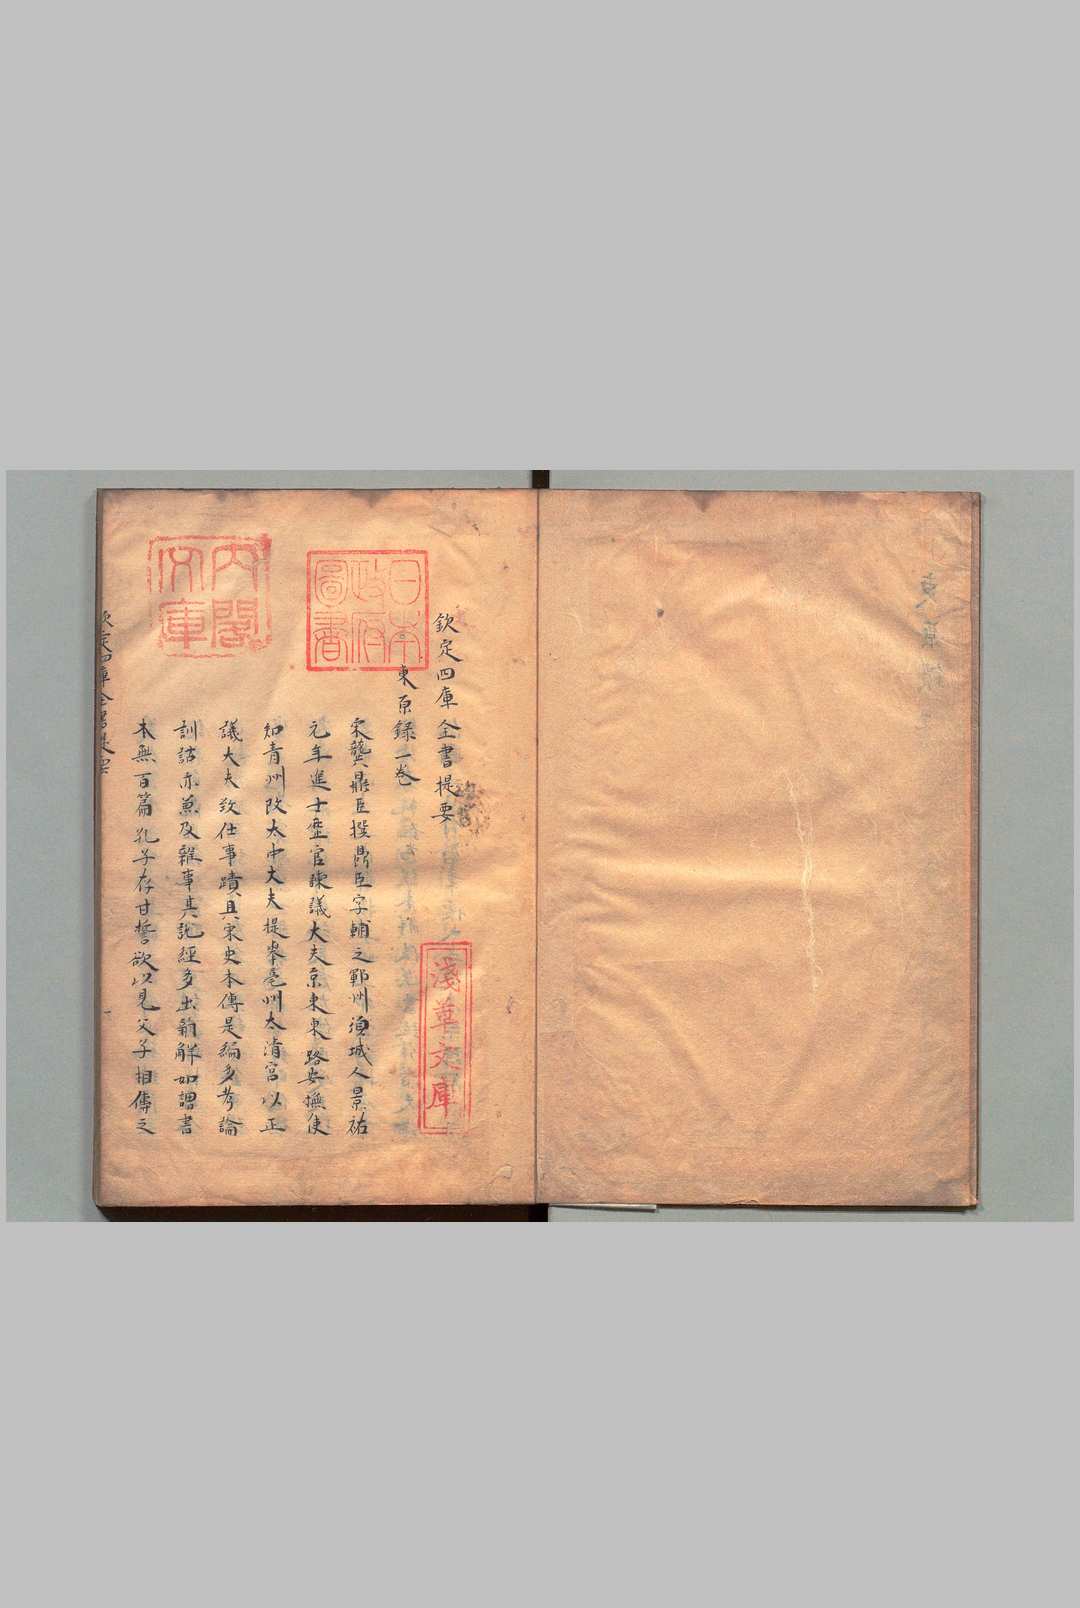 欽定四庫全書提要
東原録一巻
宋龔鼎臣撰鼎臣字輔之鄆州須城人景祐
元年進士歴官諫議大夫京東東路安撫使
知青州改太中大夫提舉亳州太清宮以正
議大夫致仕事蹟具宋史本傳是編多考論
訓詁亦兼及雜事其説經多出新解如謂書
本無百篇孔子存甘誓欲以見父子相傳之
欽定四庫全書提要
日本
政府
圖書
內閣
文庫
淺草文庫